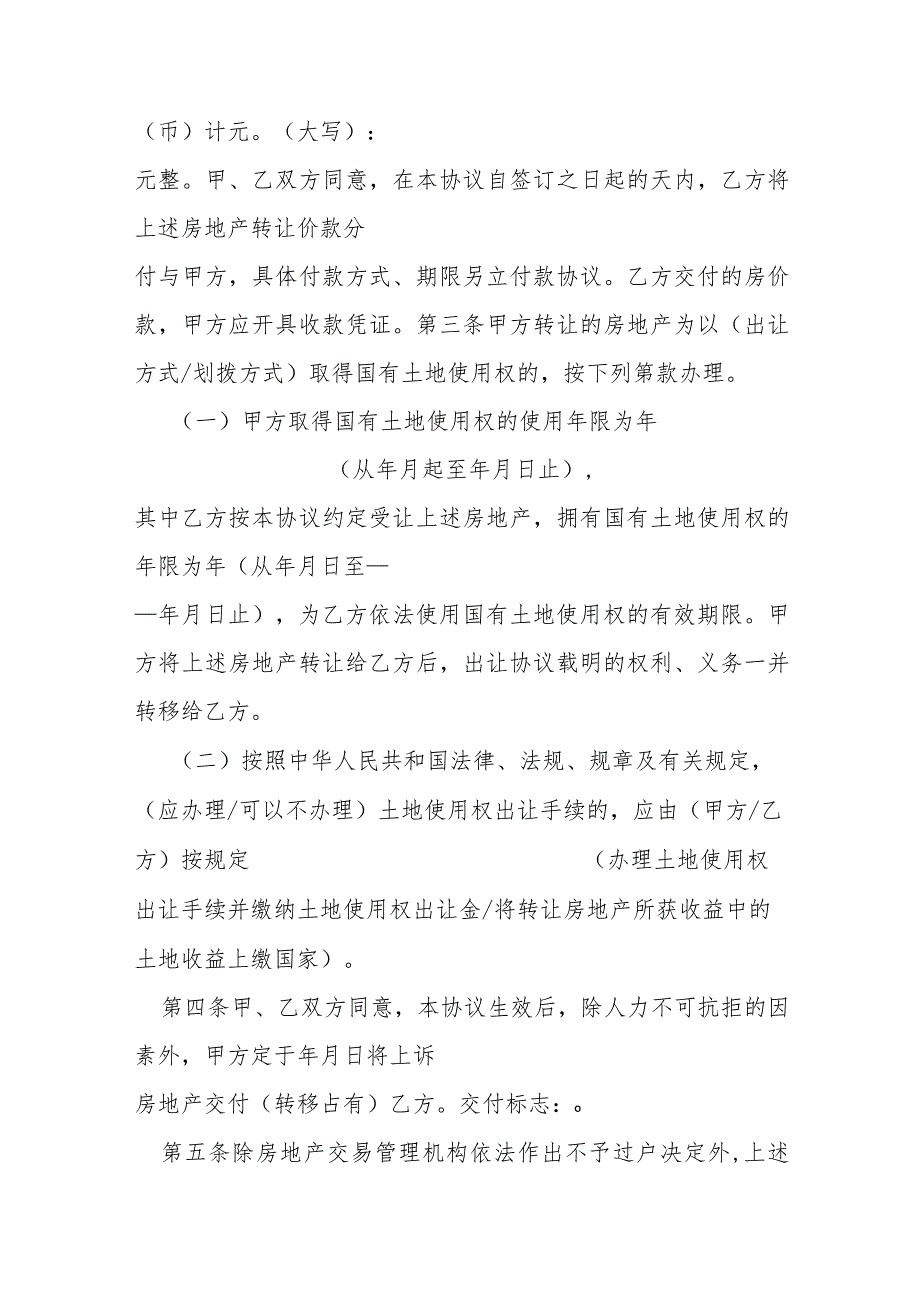 （币）计元。（大写）：
元整。甲、乙双方同意，在本协议自签订之日起的天内，乙方将
上述房地产转让价款分
付与甲方，具体付款方式、期限另立付款协议。乙方交付的房价
款，甲方应开具收款凭证。第三条甲方转让的房地产为以（出让
方式/划拨方式）取得国有土地使用权的，按下列第款办理。
（一）甲方取得国有土地使用权的使用年限为年
（从年月起至年月日止）,
其中乙方按本协议约定受让上述房地产，拥有国有土地使用权的
年限为年（从年月日至—
—年月日止），为乙方依法使用国有土地使用权的有效期限。甲
方将上述房地产转让给乙方后，出让协议载明的权利、义务一并
转移给乙方。
（二）按照中华人民共和国法律、法规、规章及有关规定，
（应办理/可以不办理）土地使用权出让手续的，应由（甲方/乙
方）按规定 （办理土地使用权
出让手续并缴纳土地使用权出让金/将转让房地产所获收益中的
土地收益上缴国家）。
第四条甲、乙双方同意，本协议生效后，除人力不可抗拒的因
素外，甲方定于年月日将上诉
房地产交付（转移占有）乙方。交付标志：。
第五条除房地产交易管理机构依法作出不予过户决定外,上述